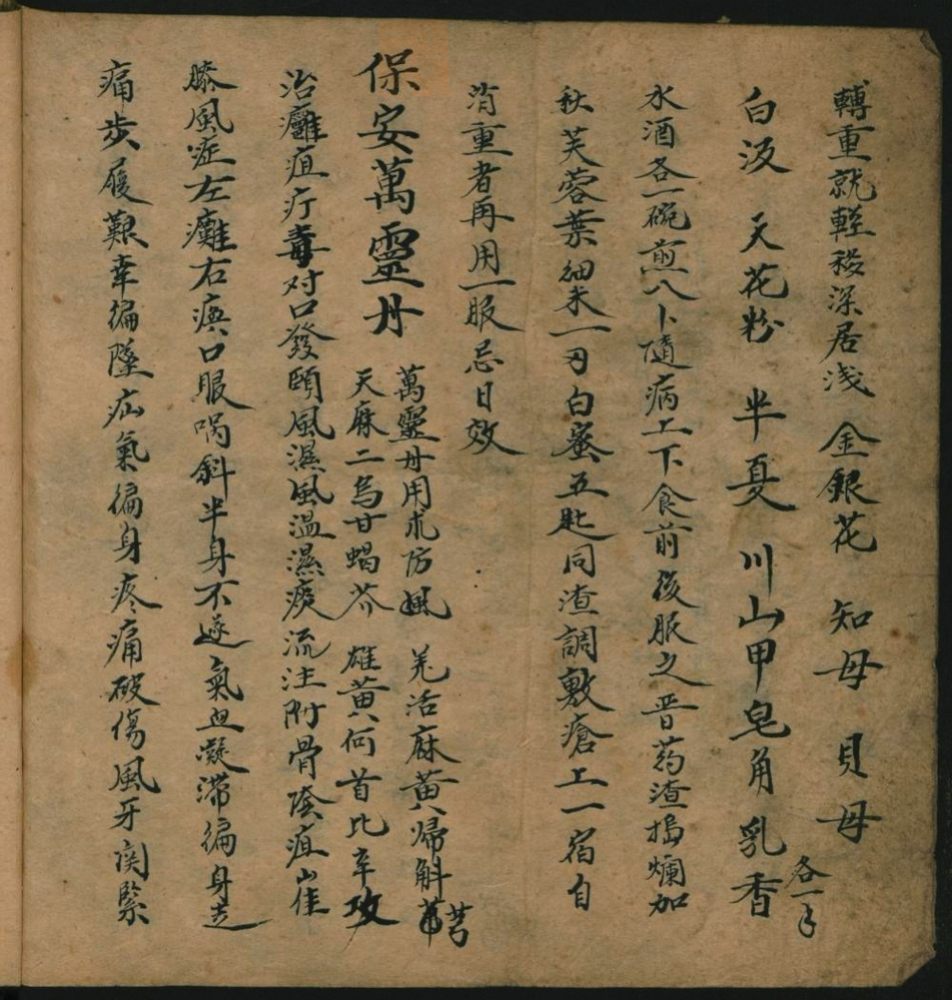 轉重就輕發深居浅 金銀花 知母 貝母
白汲 天花粉 半夏 川山甲 皂角 乳香 各一
水酒各一碗煎八卜隨病上下食前後服之晋药渣搗爛加
秋芙蓉葉細末一刃白蜜五匙同渣調敷瘡上一宿自
消重者再用一服忌日效
保安萬靈丹 萬靈丹用朮防風 羌活麻黄歸斛芎
天麻二烏甘蝎芥 雄黄何首比辛攻
治癰疽疔毒对口發頤風濕風温濕痰流注附骨陰疽鶴
膝風症左癱右瘓口眼喎斜半身不遂氣血凝滞徧身走
痛步履艱辛偏墜疝氣徧身疼痛破傷風牙関緊